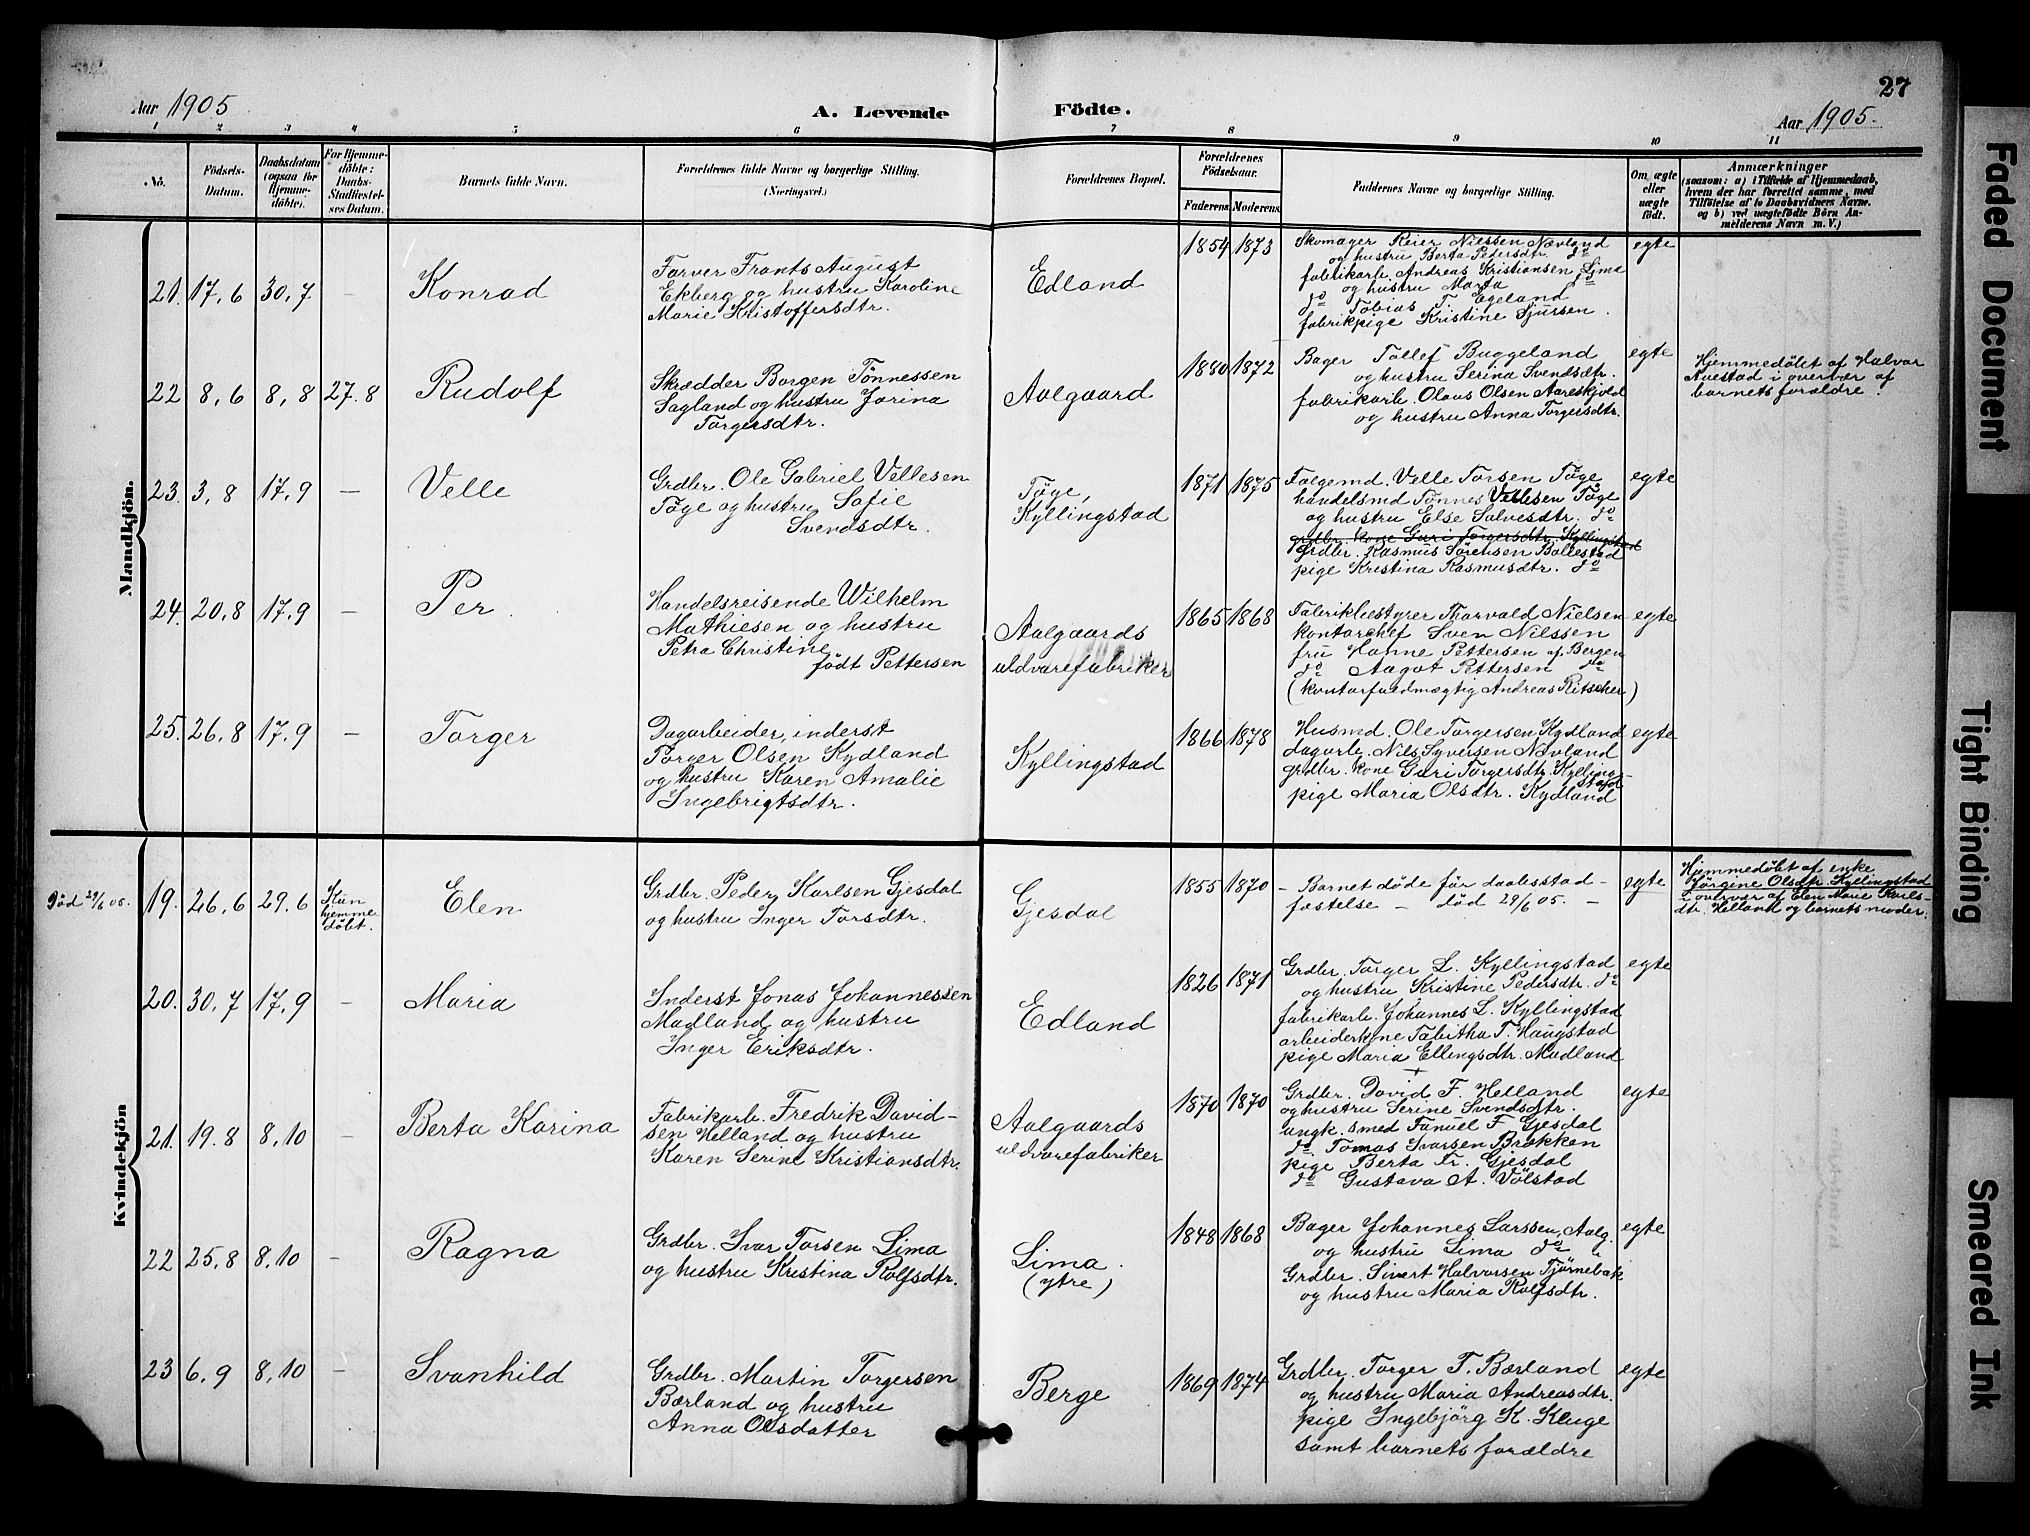 27
Aar 1905
A. Levende Födte.
Aar 1905.
1 2 3 4 5 6 7 8 9 10 11
No.
Födsels-
Datum.
Daabsdatum
(ogsaa for
Hjemme-
döbte).
For Hjemme-
döbte:
Daabs-
Stadfæstel-
ses Datum.
Barnets fulde Navn.
Forældrenes fulde Navne og borgerlige Stilling.
(Næringsvei.)
Forældrenes Bopæl.
Forældrenes
Födselsaar.
Faderens Moderens
Faddernes Navne og borgerlige Stilling.
Om ægte
eller
uægte
födt.
Anmærkninger
(saasom: a) i Tilfælde af Hjemmedaab,
hvem der har forrettet samme, med
Tilföielse af to Daabsvidners Navne.
og b) ved uægtefödte Börn An-
melderens Navn m. V.)
Mandkjön.
21. 17,6 30,7 - Konrad
Farver Frants August
Ekberg og hustru Karoline
Marie Kristoffersdtr.
Edland
1854 1873
Skomager Reier Nielsen Nævland
og hustru Berta Pedersdtr. do
fabrikarb. Andreas Kristiansen Lima
og hustru Marta do
do Tobias T. Egeland
fabrikpige Kristine Sjursen.
egte
22 8,6 8,8 27.8 Rudolf
Skrædder Borgen Tönnessen
Sagland og hustru Jorina
Torgersdtr.
Aalgaard
1880 1872
Bager Tollef Buggeland
og hustru Serina Svendsdtr.
fabrikarb. Olaus Olsen Aareskjold
og hustru Anna Torgersdtr.
egte
Hjemmedöbt af Halvar
Auestad i overvær af
barnets forældre.
23. 3,8 17,9 - Velle
Grdbr. Ole Gabriel Vellesen
Töge og hustru Sofie
Svendsdtr.
Töge,
Kyllingstad
1871 1875
Folgemd. Velle Torsen Töge
handelsmd Tönnes Vellesen Töge
og hustru Else Salvesdtr. do
grdbr. kone Guri Torgersdtr. Kyllingstad
grdbr. Rasmus Sörensen Ballestad
pige Kristina Rasmusdtr. do
egte
24. 20,8 17,9 - Per.
Handelsreisende Wilhelm
Mathiesen og hustru
Petra Christine
født Pettersen
Aalgaards
uldvarefabriker
1865 1868
Fabrikbestyrer Thorvald Nielsen
kontorchef Sven Nilssen
fru Hanne Pettersen af Bergen
do Aagot Pettersen do
(kontorfuldmægtig Andreas Ritscher)
egte
25. 26,8 17,9 - Torger
Dagarbeider, inderst
Torger Olsen Kydland
og hustru Karen Amalie
Ingebrigtsdtr.
Kyllingstad
1866 1878
Husmd. Ole Torgersen Kydland
dagarb. Nils Syversen Nævland
grdbr. kone Guri Torgersdtr. Kylling-
stad
pige Maria Olsdtr. Kydland
egte
Kvindekjön
Död 29/6 05.
19. 26,6 29,6
Kun
hjemme
döbt.
Elen
Grdbr. Peder Karlsen Gjesdal
og hustru Inger Torsdtr.
Gjesdal
1855 1870
- Barnet döde för daabsstad-
fæstelse - död 29/6 05. -
egte
Hjemmedöbt af enke
Jörgine Olsdtr. Kyllingstad
i overvær af Elen Marie Karls-
dtr. Helland og barnets moder.
20. 30,7 17,9 - Maria
Inderst Jonas Johannessen
Madland og hustru
Inger Eriksdtr.
Edland
1826 1871
Grdbr. Torger L. Kyllingstad
og hustru Kristine Pedersdtr. do
fabrikarb. Johannes L. Kyllingstad
arbeiderkone Tabitha T. Haugstad
pige Maria Ellingsdtr. Madland
egte
21. 19.8 8,10 - Berta Karina
Fabrikarb. Fredrik David-
sen Helland og hustru
Karen Serine Kristiansdtr.
Aalgaards
uldvarefabriker
1870 1870
Grdbr. David F. Helland
og hustru Serine Svendsdtr.
ungk. smed Fanuel F. Gjesdal
do Tomas Ivarsen Brækken
pige Berta Tr. Gjesdal
do Gustava A. Völstad
egte
22 25,8 8,10 - Ragna
Grdbr. Ivar Torsen Lima
og hustru Kristina Rolfsdtr.
Lima.
(ytre)
1848 1868
Bager Johannes Larssen, Aalg.
og hustru Lima do
Grdbr. Sivert Halvorsen Tjörnebak
og hustru Maria Rolfsdtr.
egte
23 6,9 8,10 - Svanhild
Grdbr. Martin Torgersen
Bærland og hustru
Anna Olsdatter
Berge
1869 1874
Grdbr. Torger T. Bærland
og hustru Maria Andreasdtr.
pige Ingebjörg K. Kluge
samt barnets forældre
egte
Faded Document
Tight Binding
Smeared Ink